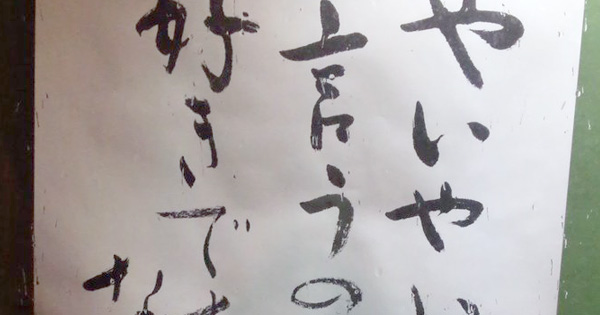 やいやい
言うの
好きです
な